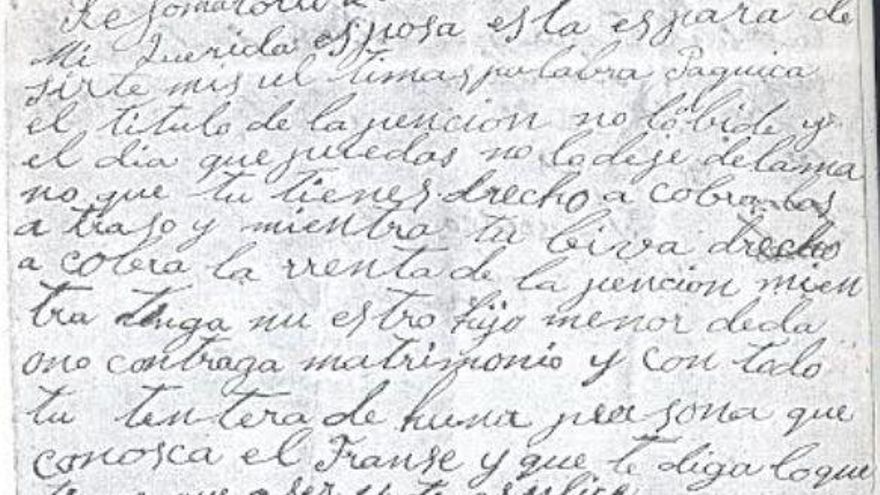 Mi querida esposa esta es para de
sirte mis ul timas palabra Paquica
el titulo de la pencion no lo lbide y
el dia que puedas no lo deje de la ma
no que tu tienes drecho a cobra los
a traso y mientra tu biva drecho
a cobra la rrenta de la pencion mien
tra tenga nuestro hijo menor deda
ono contraga matrimonio y con todo
tu tentera de huna persona que
conosca el Franse y que te diga loque